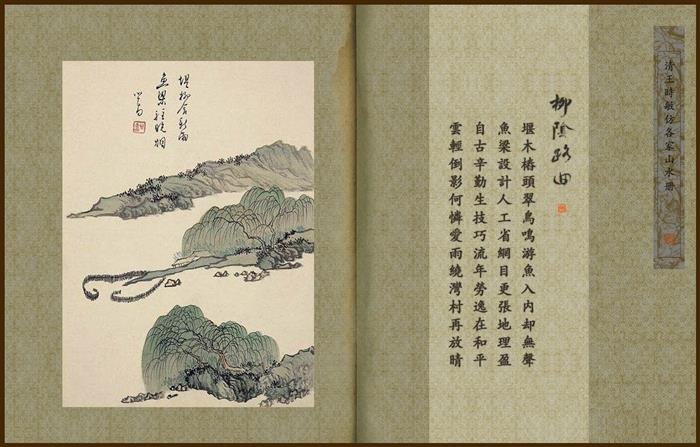 清王時敏仿各家山水册
柳陰路曲
堰木樁頭翠鳥鳴游魚入內却無聲
魚梁設計人工省網目更張地理盈
自古辛勤生技巧流年勞逸在和平
雲輕倒影何憐愛雨繞灣村再放晴
堤柳含新雨
魚梁裊晚烟